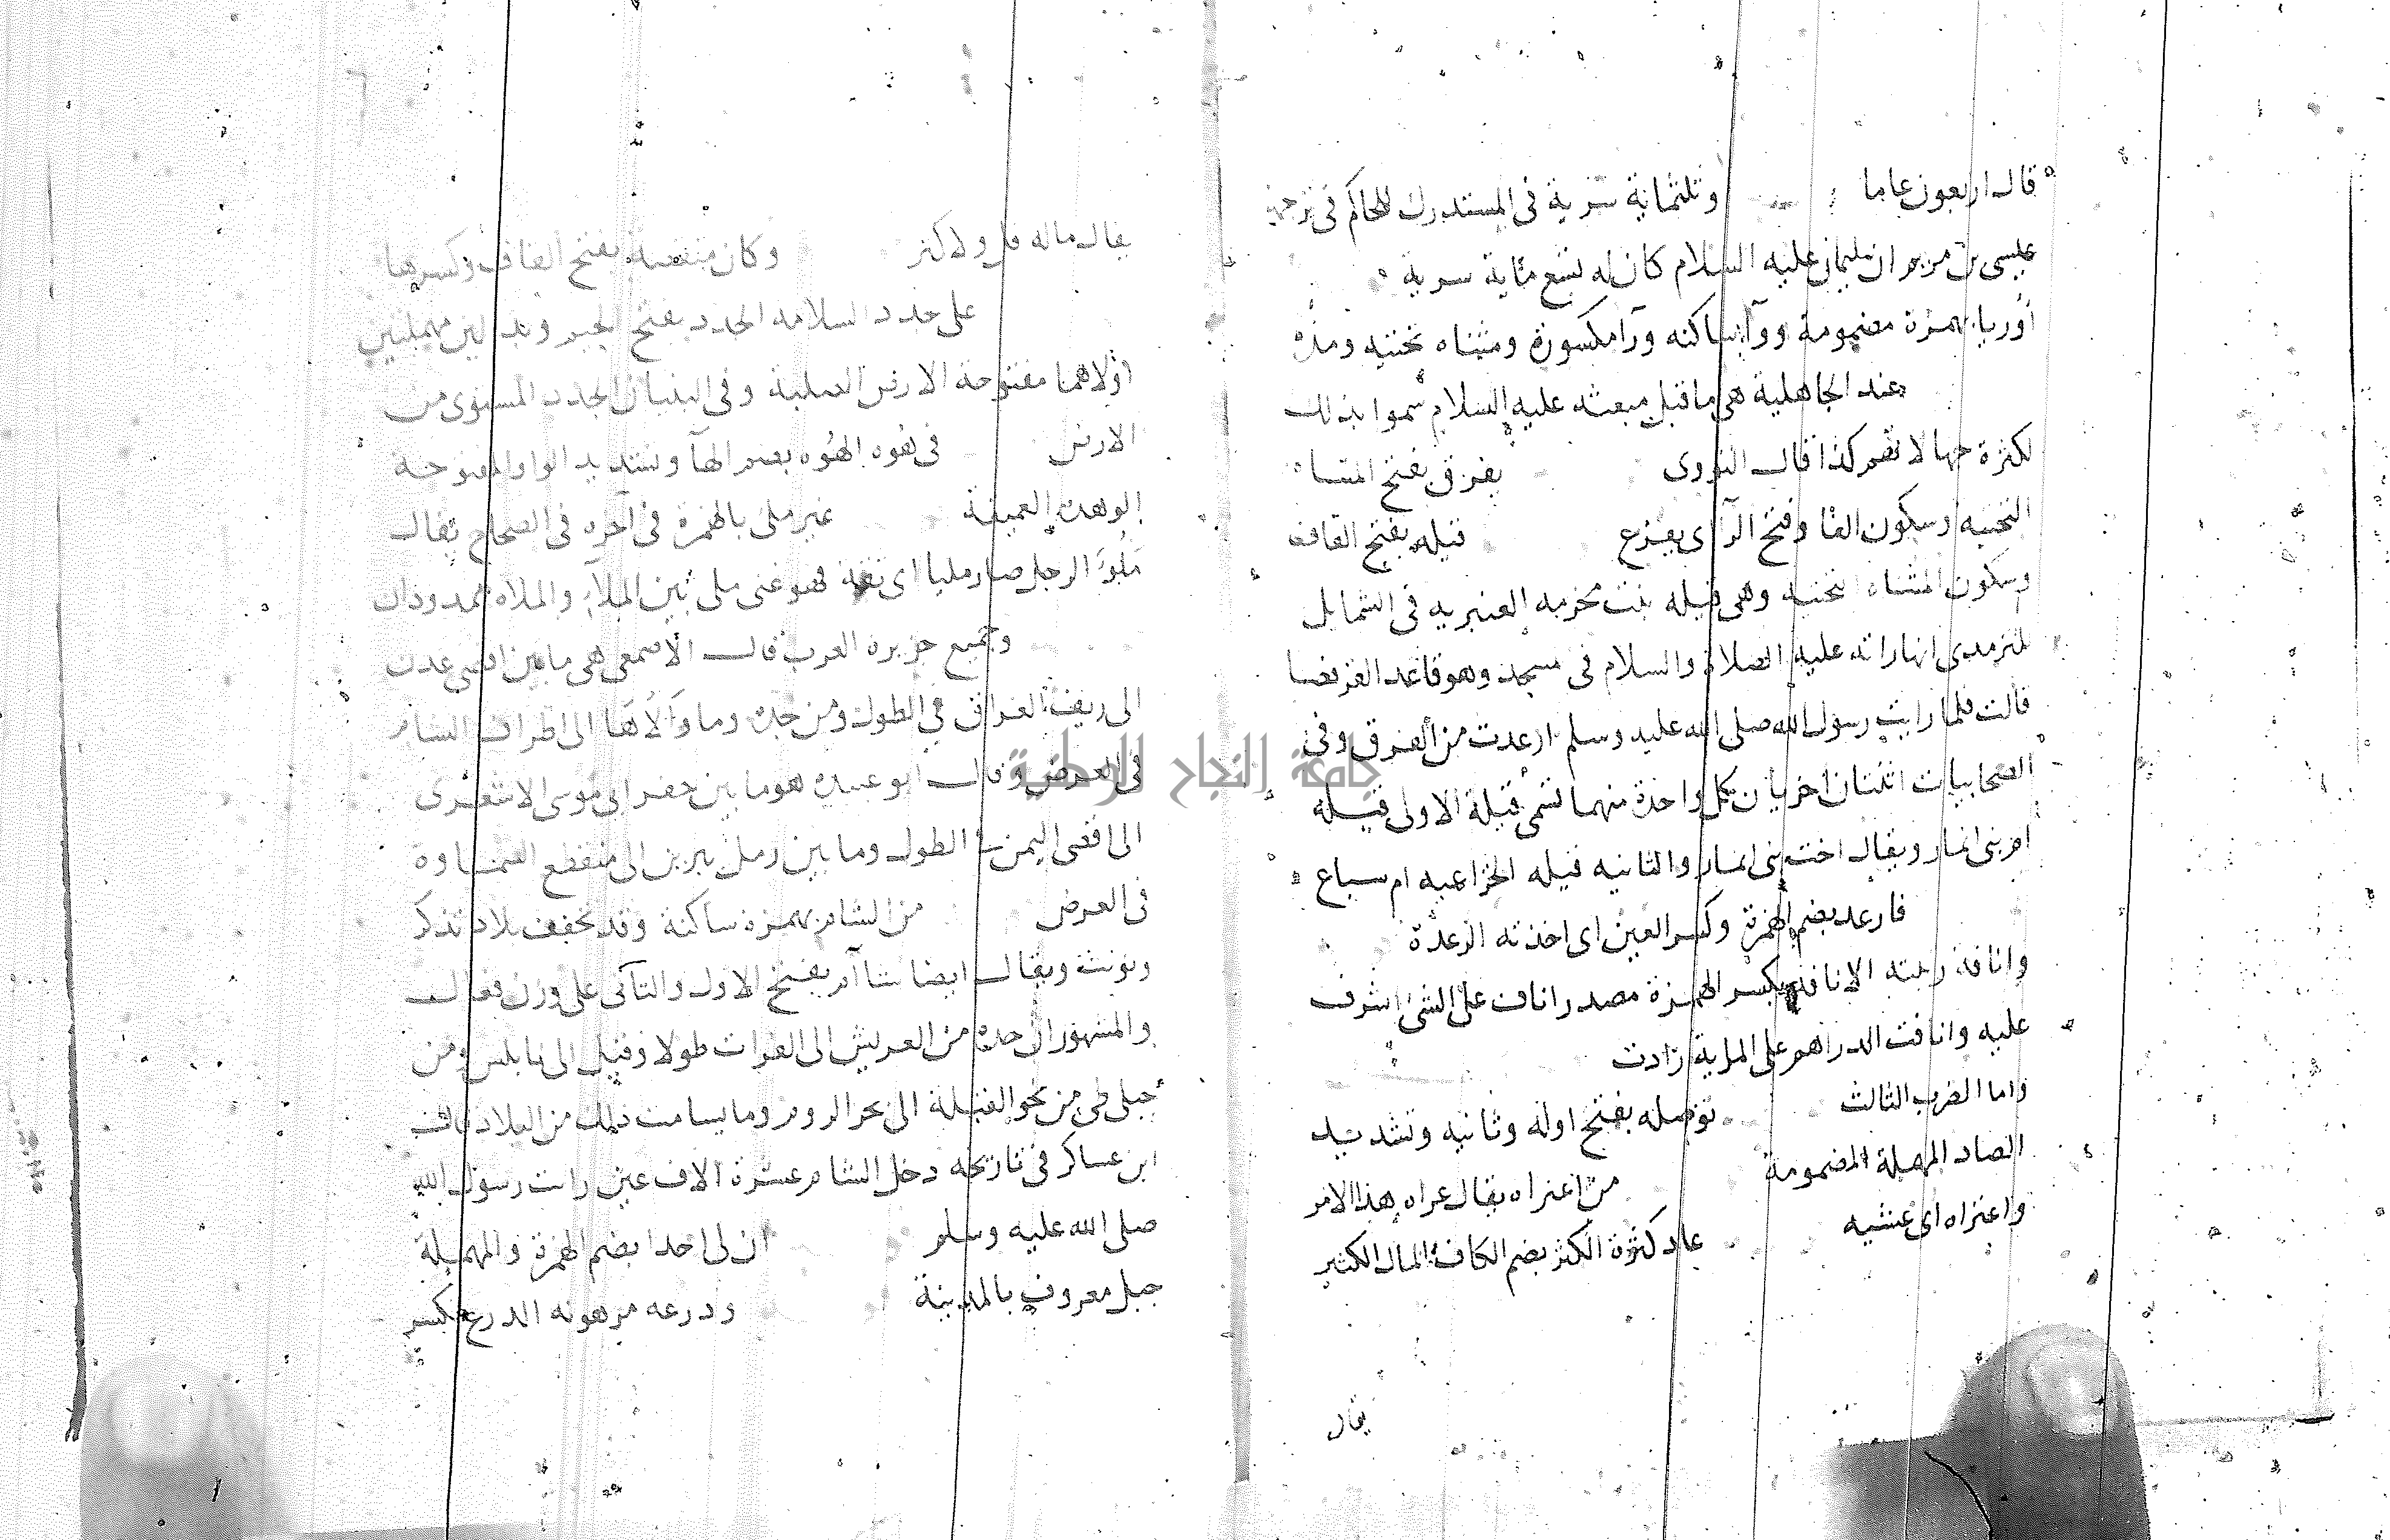 قال اربعون عاما وثلثمائة سرية فى المستدرك للحاكم فى ترجمة
عيسى بن مريم ان سليمان عليه السلام كان له تسع مئاية سرية
أوريا بهمزة مضمومة وواو ساكنه ورآ مكسورة ومثناه تحتيه ومدة
عند الجاهلية هى ما قبل مبعثه عليه السلام سموا بذلك
لكثرة جهالاتهم كذا قال النووى يفرق بفتح المثناه
التحتيه وسكون الفا وفتح الرآ اى يفزع قيله بفتح القاف
وسكون المثناه التحتيه وهى قيله بنت مخرمه العنبريه فى الشمايل
للترمدى انها راته عليه الصلاة والسلام فى مسجد وهو قاعد القرفصا
قالت فلما رايت رسول الله صلى الله عليه وسلم ارعدت من الفرق وفى
الصحابيات اثنتان اخريان كل واحدة منهما تسمى قيلة الاولى قيله
ام بنى انمار ويقال اخت بنى انمار والثانيه قيله الخزاعيه ام سباع
فارعد بضم الهمزة وكسر العين اى اخذته الرعدة
وانافة رتبته الانافة بكسر الهمزة مصدر اناف على الشئ اشرف
عليه وانافت الدراهم على الماية زادت
واما الضرب الثالث توصله بفتح اوله وثانيه وتشديد
الصاد المهملة المضمومة من اعتراه يقال عراه هذا الامر
واعتراه اى غشيه عاد كثرة الكثر بضم الكاف المال الكثير
يقال
يقال ماله قل ولا كثر وكان منقصة بفتح القاف وكسرها
على جدد السلامه الجدد بفتح الجيم وبدالين مهملتين
اولاهما مفتوحة الارض الصلبة وفى البنيان الجدد المستوى من
الارض فى هوه الهوه بضم الهآ وتشديد الواو المفتوحة
الوهدة العميقة غير ملئ بالهمزة فى آخره فى الصحاح يقال
ملُؤَ الرجل صار مليا اى ثقة فهو غنى ملى بين الملآء والملاه ممدودان
وجميع جزيره العرب قال الاصمعى هى ما بين اقصى عدن
الى ريف العراق فى الطول ومن جدة وما والاها الى اطراف الشام
فى العرض وقال ابو عبيدة هو ما بين حفر ابى موسى الاشعرى
الى اقصى اليمن فى الطول وما بين رمل يبرين الى منقطع السماوة
فى العرض من الشام بهمزة ساكنة وقد تخفف بلاد تذكر
وتونث ويقال ايضا شآم بفتح الاول والثانى على وزن فعال
والمشهور ان حدة من العريش الى الفرات طولا وقيل الى نابلس ومن
جبلى طى من نحو القبلة الى بحر الروم وما يسامت ذلك من البلاد قال
ابن عساكر فى تاريخه دخل الشام عشرة الاف عين رات رسول الله
صلى الله عليه وسلم ان لى احدا بضم الهمزة والمهملة
جبل معروف بالمدينة ودرعه مرهونه الدرع بكسر
جامعة النجاح الوطنية